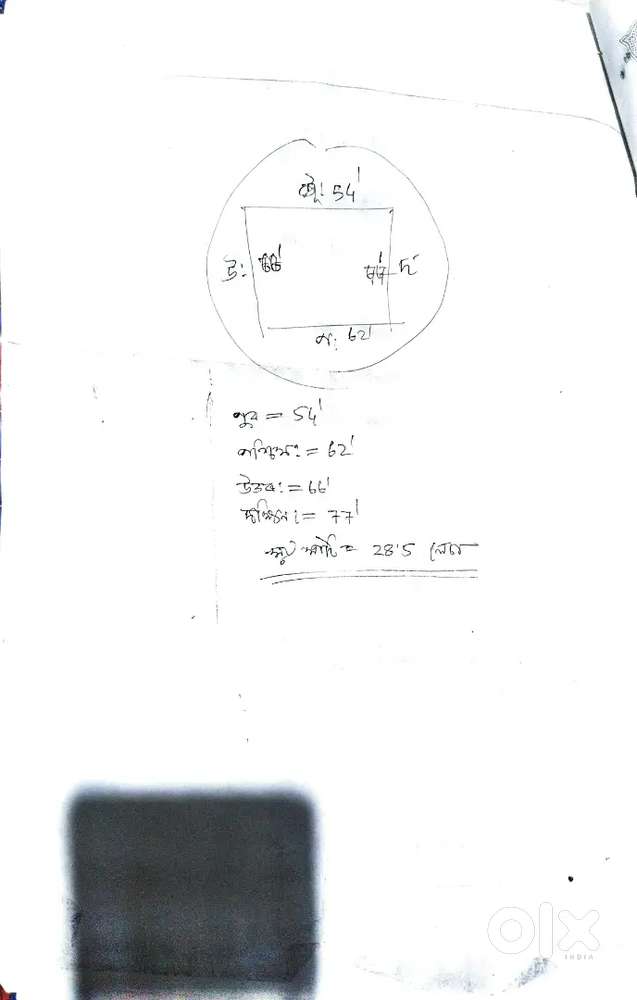 পূ: 54'
উ:
66'
77'
দ:
প: 62'
পুব = 54'
পশ্চিম: = 62'
উত্তৰ: = 66'
দক্ষিন: = 77'
মুঠ মাটি = 28.5 লেচা
OLX
INDIA